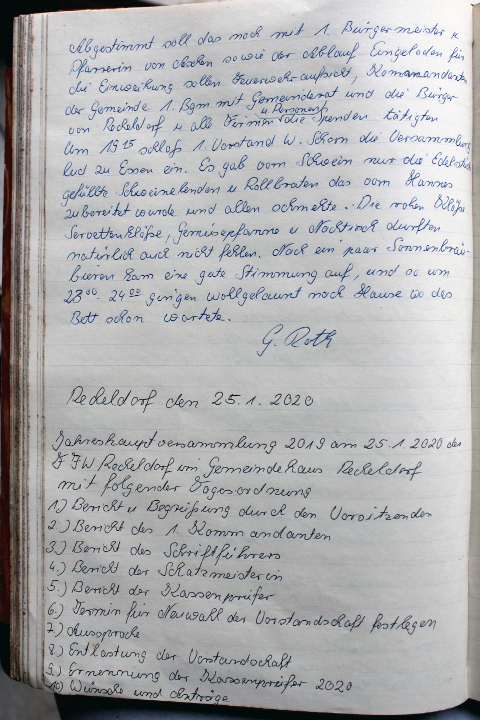 Abgestimmt soll das noch mit 1. Bürgermeister u
Pfarrerin von Aschen sowie der Ablauf Eingeladen für
die Einweihung sollen Feuerwehraufsicht, Komanandanten
der Gemeinde 1. Bgm mit Gemeinderat und die Bürger
u Personen
von Reckeldorf u alle Firmen die Spenden tätigten
Um 19 15 schloß 1. Vorstand W. Schorn die Versammlung
lud zu Essen ein. Es gab vom Schwein nur die Edelste
gefüllte Schweinelenden u Rollbraten das vom Hannes
zubereitet wurde und allen schmekte. Die rohen Klöße
Servettenklöße, Gemüsepfanne u Nachtisch durften
natürlich auch nicht fehlen. Nach ein paar Sonnenbräu-
bieren kam eine gute Stimmung auf, und so um
23 00 - 24 00 gingen wohlgelaunt nach Hause wo das
Bett schon wartete.
G. Roth
Reckeldorf den 25.1.2020
Jahreshauptversammlung 2019 am 25.1.2020 der
FFW Reckeldorf im Gemeindehaus Reckeldorf
mit folgender Tagesordnung
1.) Bericht u Begrüßung durch den Vorsitzenden
2.) Bericht des 1. Kommandanten
3.) Bericht des Schriftführers
4.) Bericht der Schatzmeisterin
5.) Bericht der Kassenprüfer
6.) Termin für Neuwahl der Vorstandschaft festlegen
7.) Aussprache
8.) Entlastung der Vorstandschaft
9.) Ernennung der Kassenprüfer 2020
10) Wünsche und Anträge